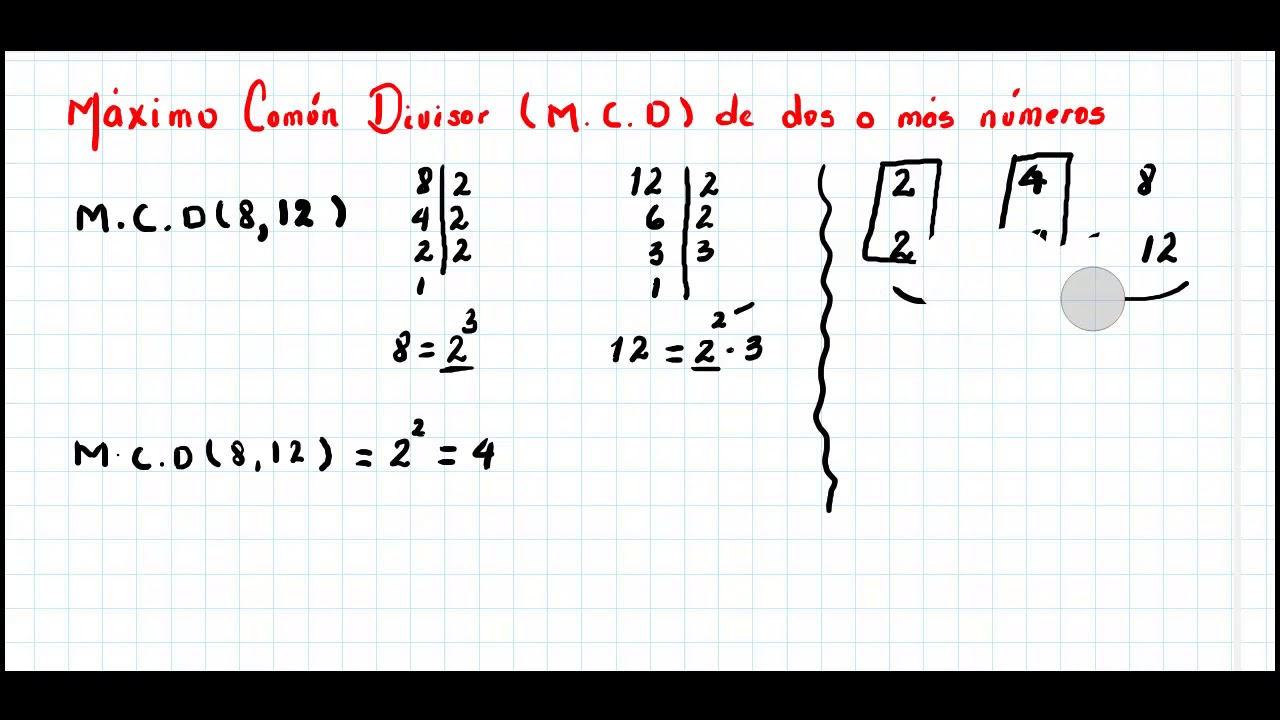 Máximo Común Divisor (M.C.D) de dos o más números
M.C.D(8,12)
8 | 2
4 | 2
2 | 2
1
8 = 2³
12 | 2
6 | 2
3 | 3
1
12 = 2² · 3
M.C.D(8,12) = 2² = 4
2 4 8
2 12